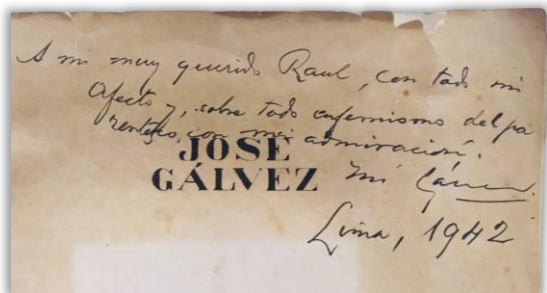 A mi muy querido Raul, con todo mi
afecto y, sobre todo eufemismo del pa
rentesco, con mi admiración.
JOSÉ
GÁLVEZ
Lima, 1942